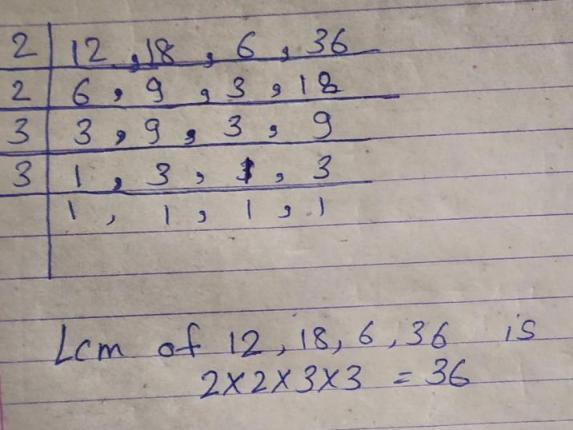 2 | 12, 18, 6, 36
2 | 6, 9, 3, 18
3 | 3, 9, 3, 9
3 | 1, 3, 1, 3
| 1, 1, 1, 1
Lcm of 12, 18, 6, 36 is
2×2×3×3 = 36